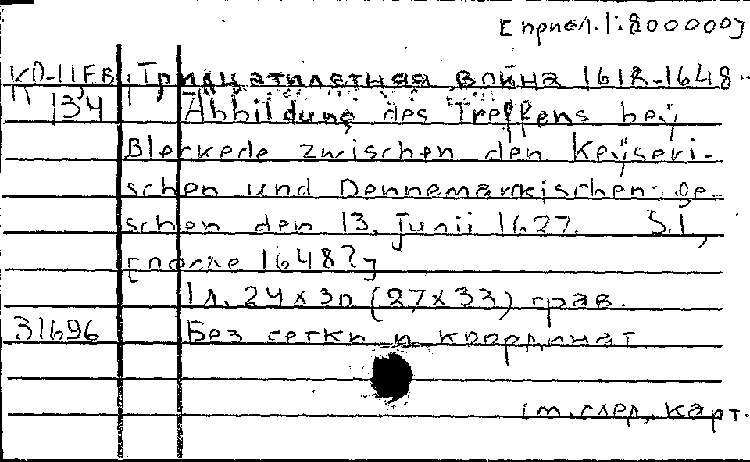 [прибл. 1:800000]
КО-11ЕВ Тридцатилетная война 1618-1648
134 Abbildung des Treffens beÿ
Bleckede zwischen den Keÿseri-
schen und Dennemarkischen ge-
schen den 13. Junii 1627. S.l,
[после 1648?]
1 л. 24x30 (27x33) грав.
31696 Без сетки и координат
см. след. карт.